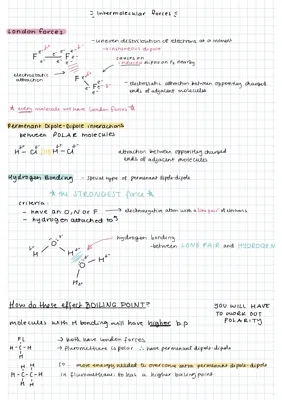 : Intermolecular forces :
London Forces
- uneven distribution of electrons at a moment
→ instaneous dipole
causes an
induced dipole on F2 nearby
electrostatic
attraction
- electrostatic attraction between oppositely charged
ends of adjacent molecules
★ every molecule will have London forces ★
Permenant Dipole-Dipole interactions
between POLAR molecules
H - Cl H - Cl
attraction between oppositely charged
ends of adjacent molecules
Hydrogen Bonding - special type of permanent dipole-dipole
★ the STRONGEST force ★
criteria:
- have an O, N or F → electronegative atom with a lone pair of electrons
- hydrogen attached to it
hydrogen bonding
- between LONE PAIR and HYDROGEN
How do these effect BOILING POINT?
YOU WILL HAVE
TO WORK OUT
POLARITY
molecules with H bonding will have higher b.p
→ both have London forces
→ fluoromethane is polar ∴ has permanent dipole-dipole
so .. more energy needed to overcome perm permanent dipole-dipole
in fluoromethane so has a higher boiling point